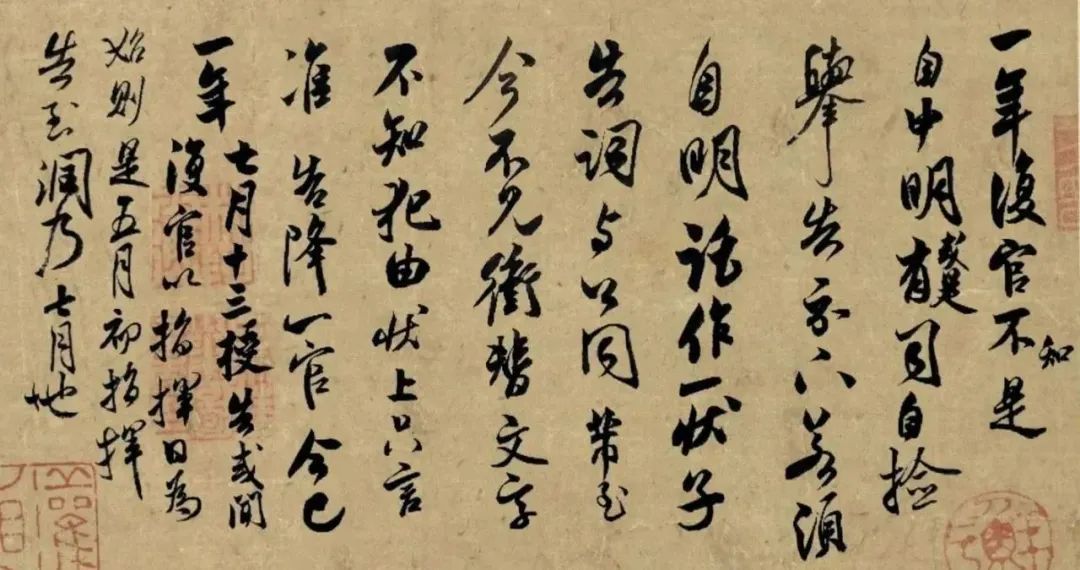 一年復官不知是
自申明或是有司自撿
舉告示下若須
自明請作一狀子
告詞与公同帶至
今不見衝替文字
不知犯由狀上只言
准告降一官今已
一年七月十三授告或聞
復官以指揮日為
始則是五月初指揮
告至潤乃七月也